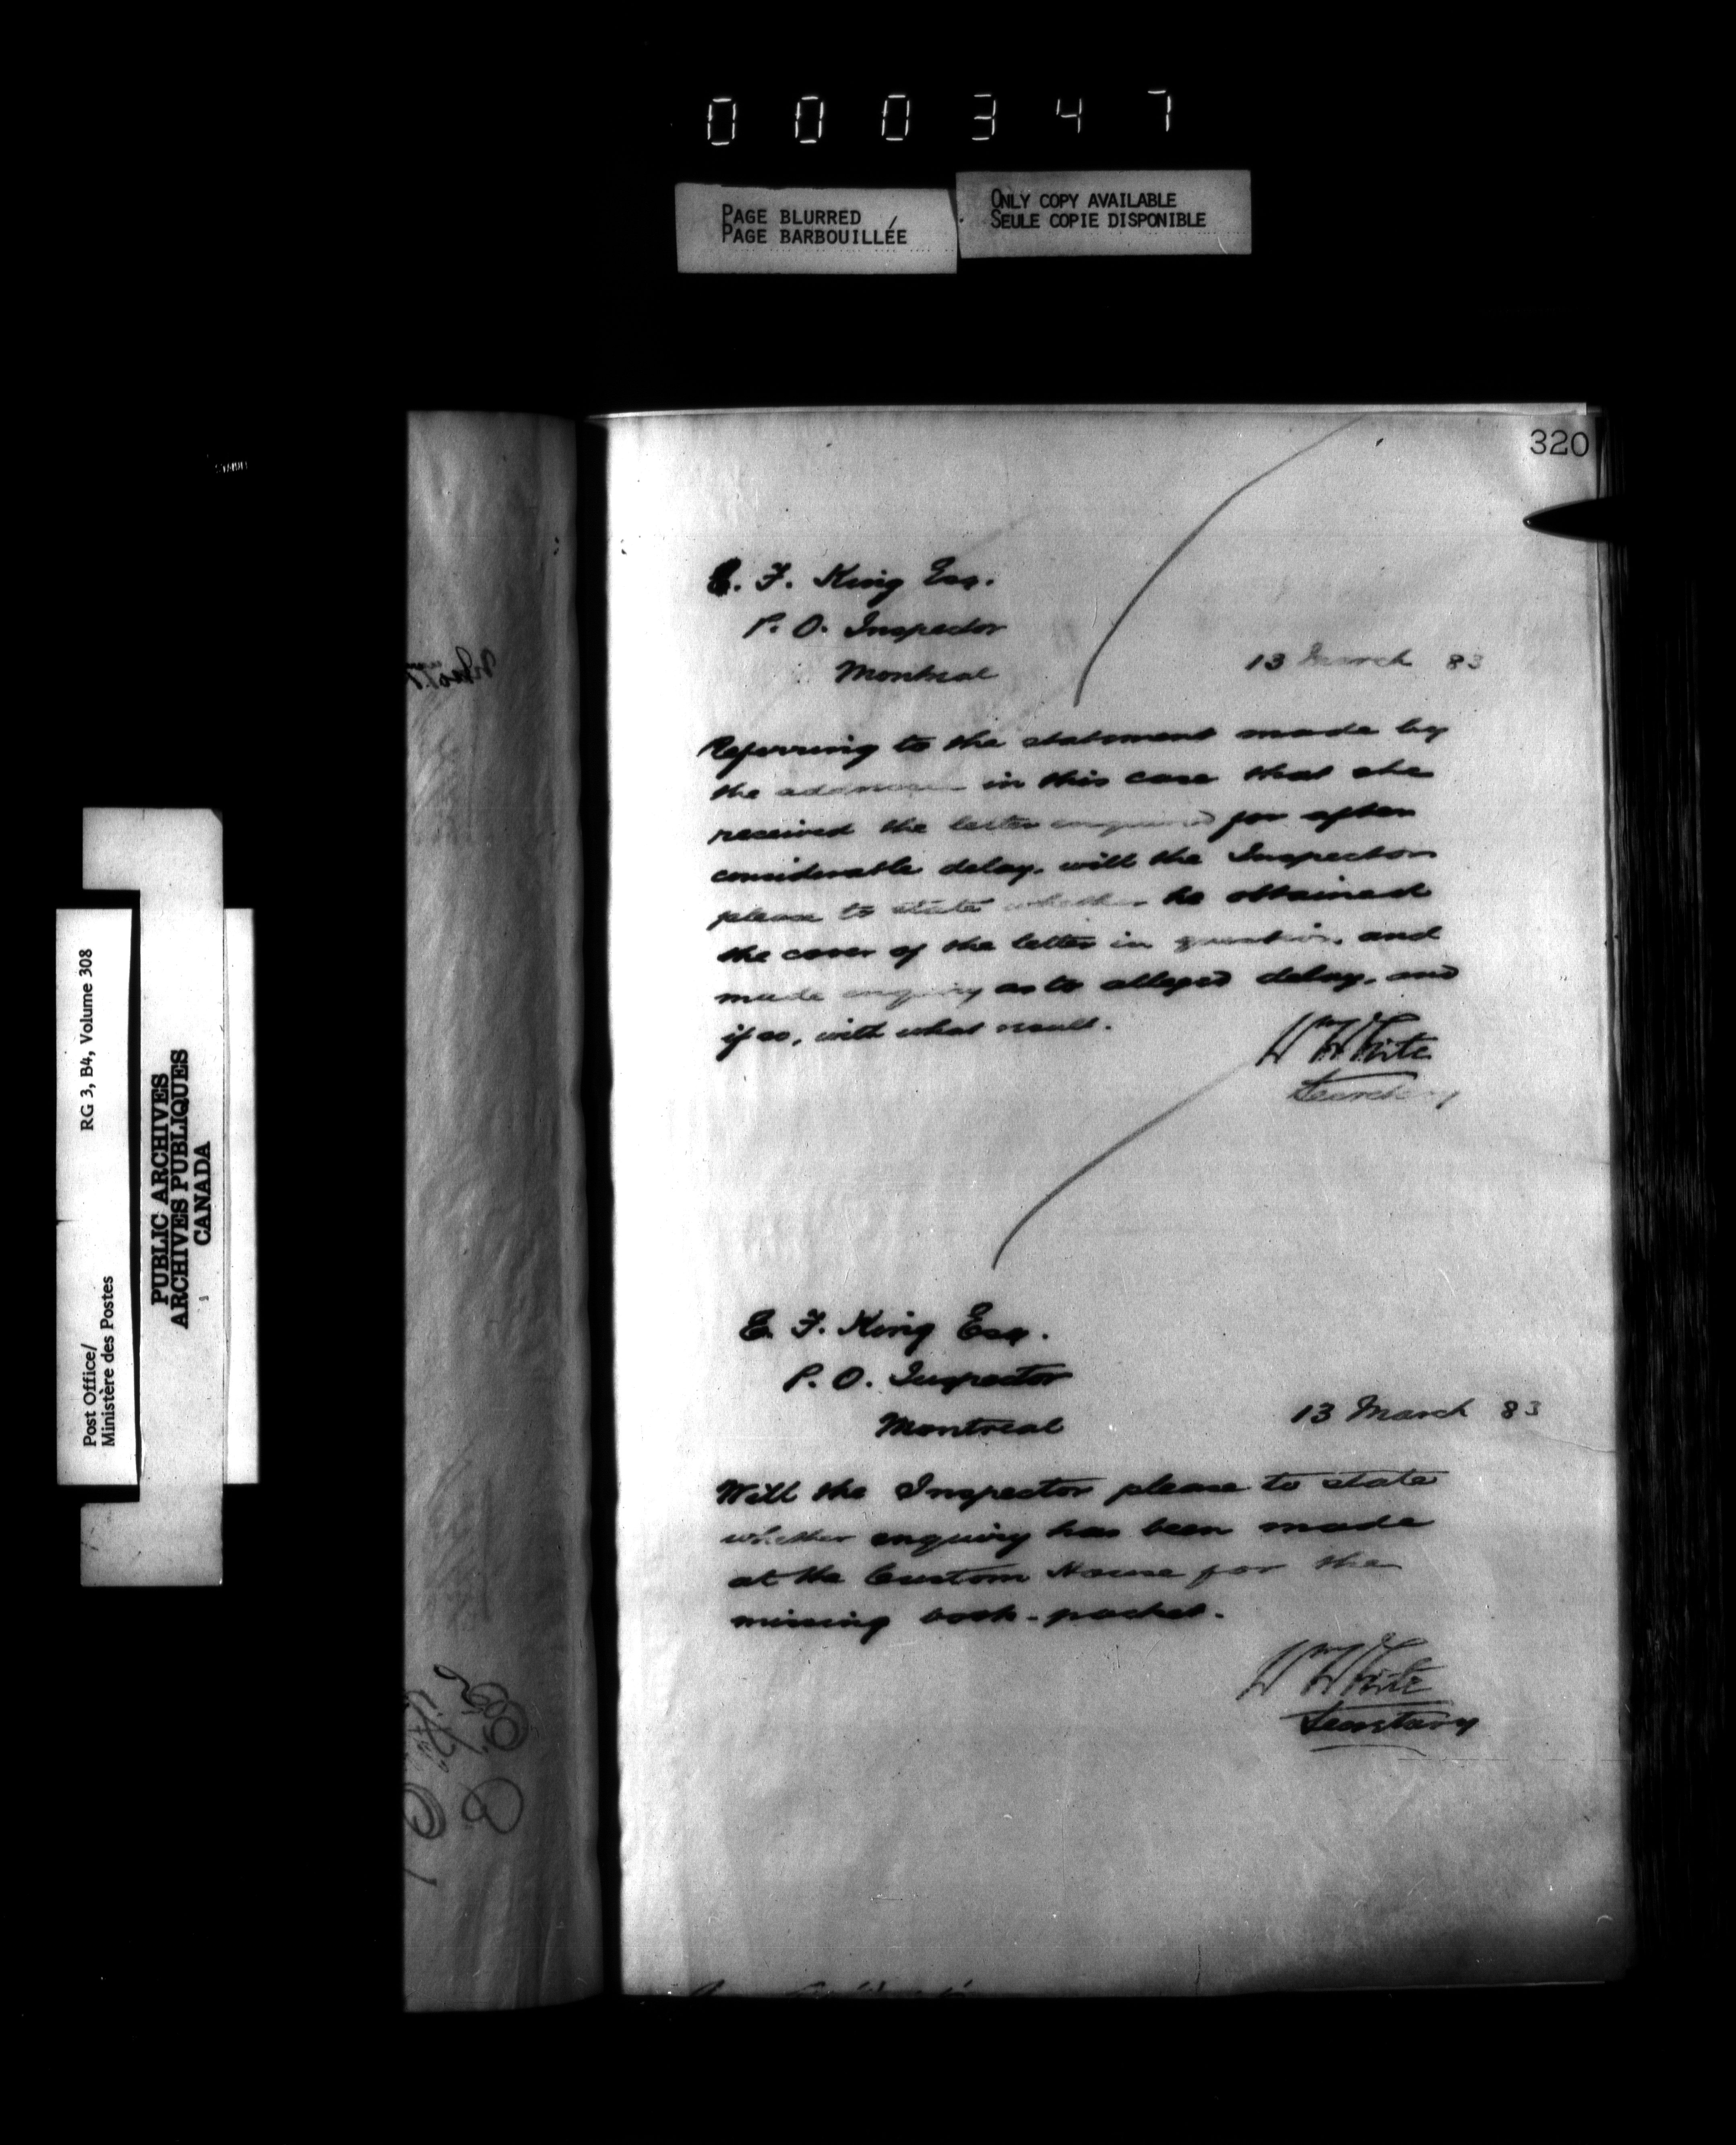 000347
PAGE BLURRED
PAGE BARBOUILLÉE
ONLY COPY AVAILABLE
SEULE COPIE DISPONIBLE
320
Post Office/
Ministère des Postes
RG 3, B4, Volume 308
PUBLIC ARCHIVES
ARCHIVES PUBLIQUES
CANADA
E. F. King Esq.
P. O. Inspector
Montreal
13 March 83
Referring to the statement made by
the addressee in this case that she
received the letter enquired for after
considerable delay, will the Inspector
please to state whether he obtained
the cover of the letter in question, and
made enquiry as to alleged delay, and
if so, with what result.
Wm White
Secretary
E. F. King Esq.
P. O. Inspector
Montreal
13 March 83
Will the Inspector please to state
whether enquiry has been made
at the Custom House for the
missing book-packet.
Wm White
Secretary